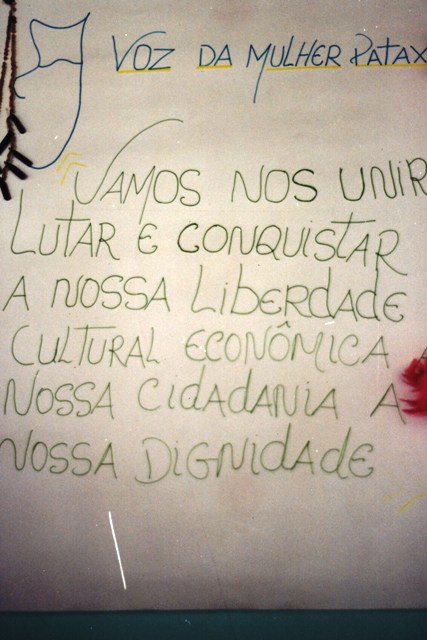 VOZ DA MULHER PATAX
VAMOS NOS UNIR
LUTAR E CONQUISTAR
A NOSSA LIBERDADE
CULTURAL ECONÔMICA A
NOSSA CIDADANIA A
NOSSA DIGNIDADE